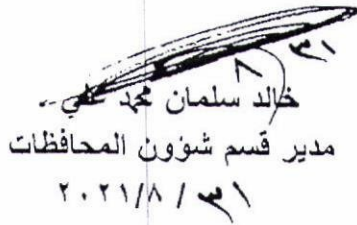 ٣١
٨
خالد سلمان محمد علي
مدير قسم شؤون المحافظات
٢٠٢١/٨/٣١